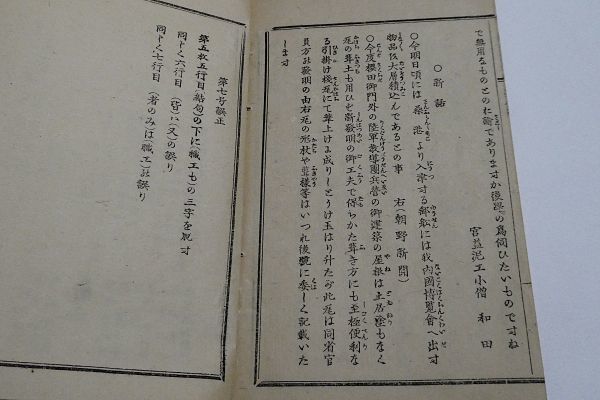 で無用なものとのに諭でありますか後學の爲伺ひたいものですね
宮益泥工小僧 和田
○新話
○今明日頃には桑港より入津する郵船には我内國博覧會へ出す
物品仅大層積込んであるとの事 右(朝野新聞)
○今度櫻田御門外の陸軍教導團兵營の御建築の屋根は土居塗もなく
瓦の葺土も用ひを新發明の御工夫で保ちかた葺き方にも至極便利な
る引掛け棧瓦にて葺上げ成りしとうけ玉はり升たが此瓦は同省官
員方の發明の由右瓦の形狀や葺樣等はいつれ後號に委しく記載いた
します
第七号誤正
第五枚五行目結句の下に(職工も)の三字を脱す
同しく六行目(皆)ハ(又)の誤り
同しく七行目(者のみは)職工の誤り